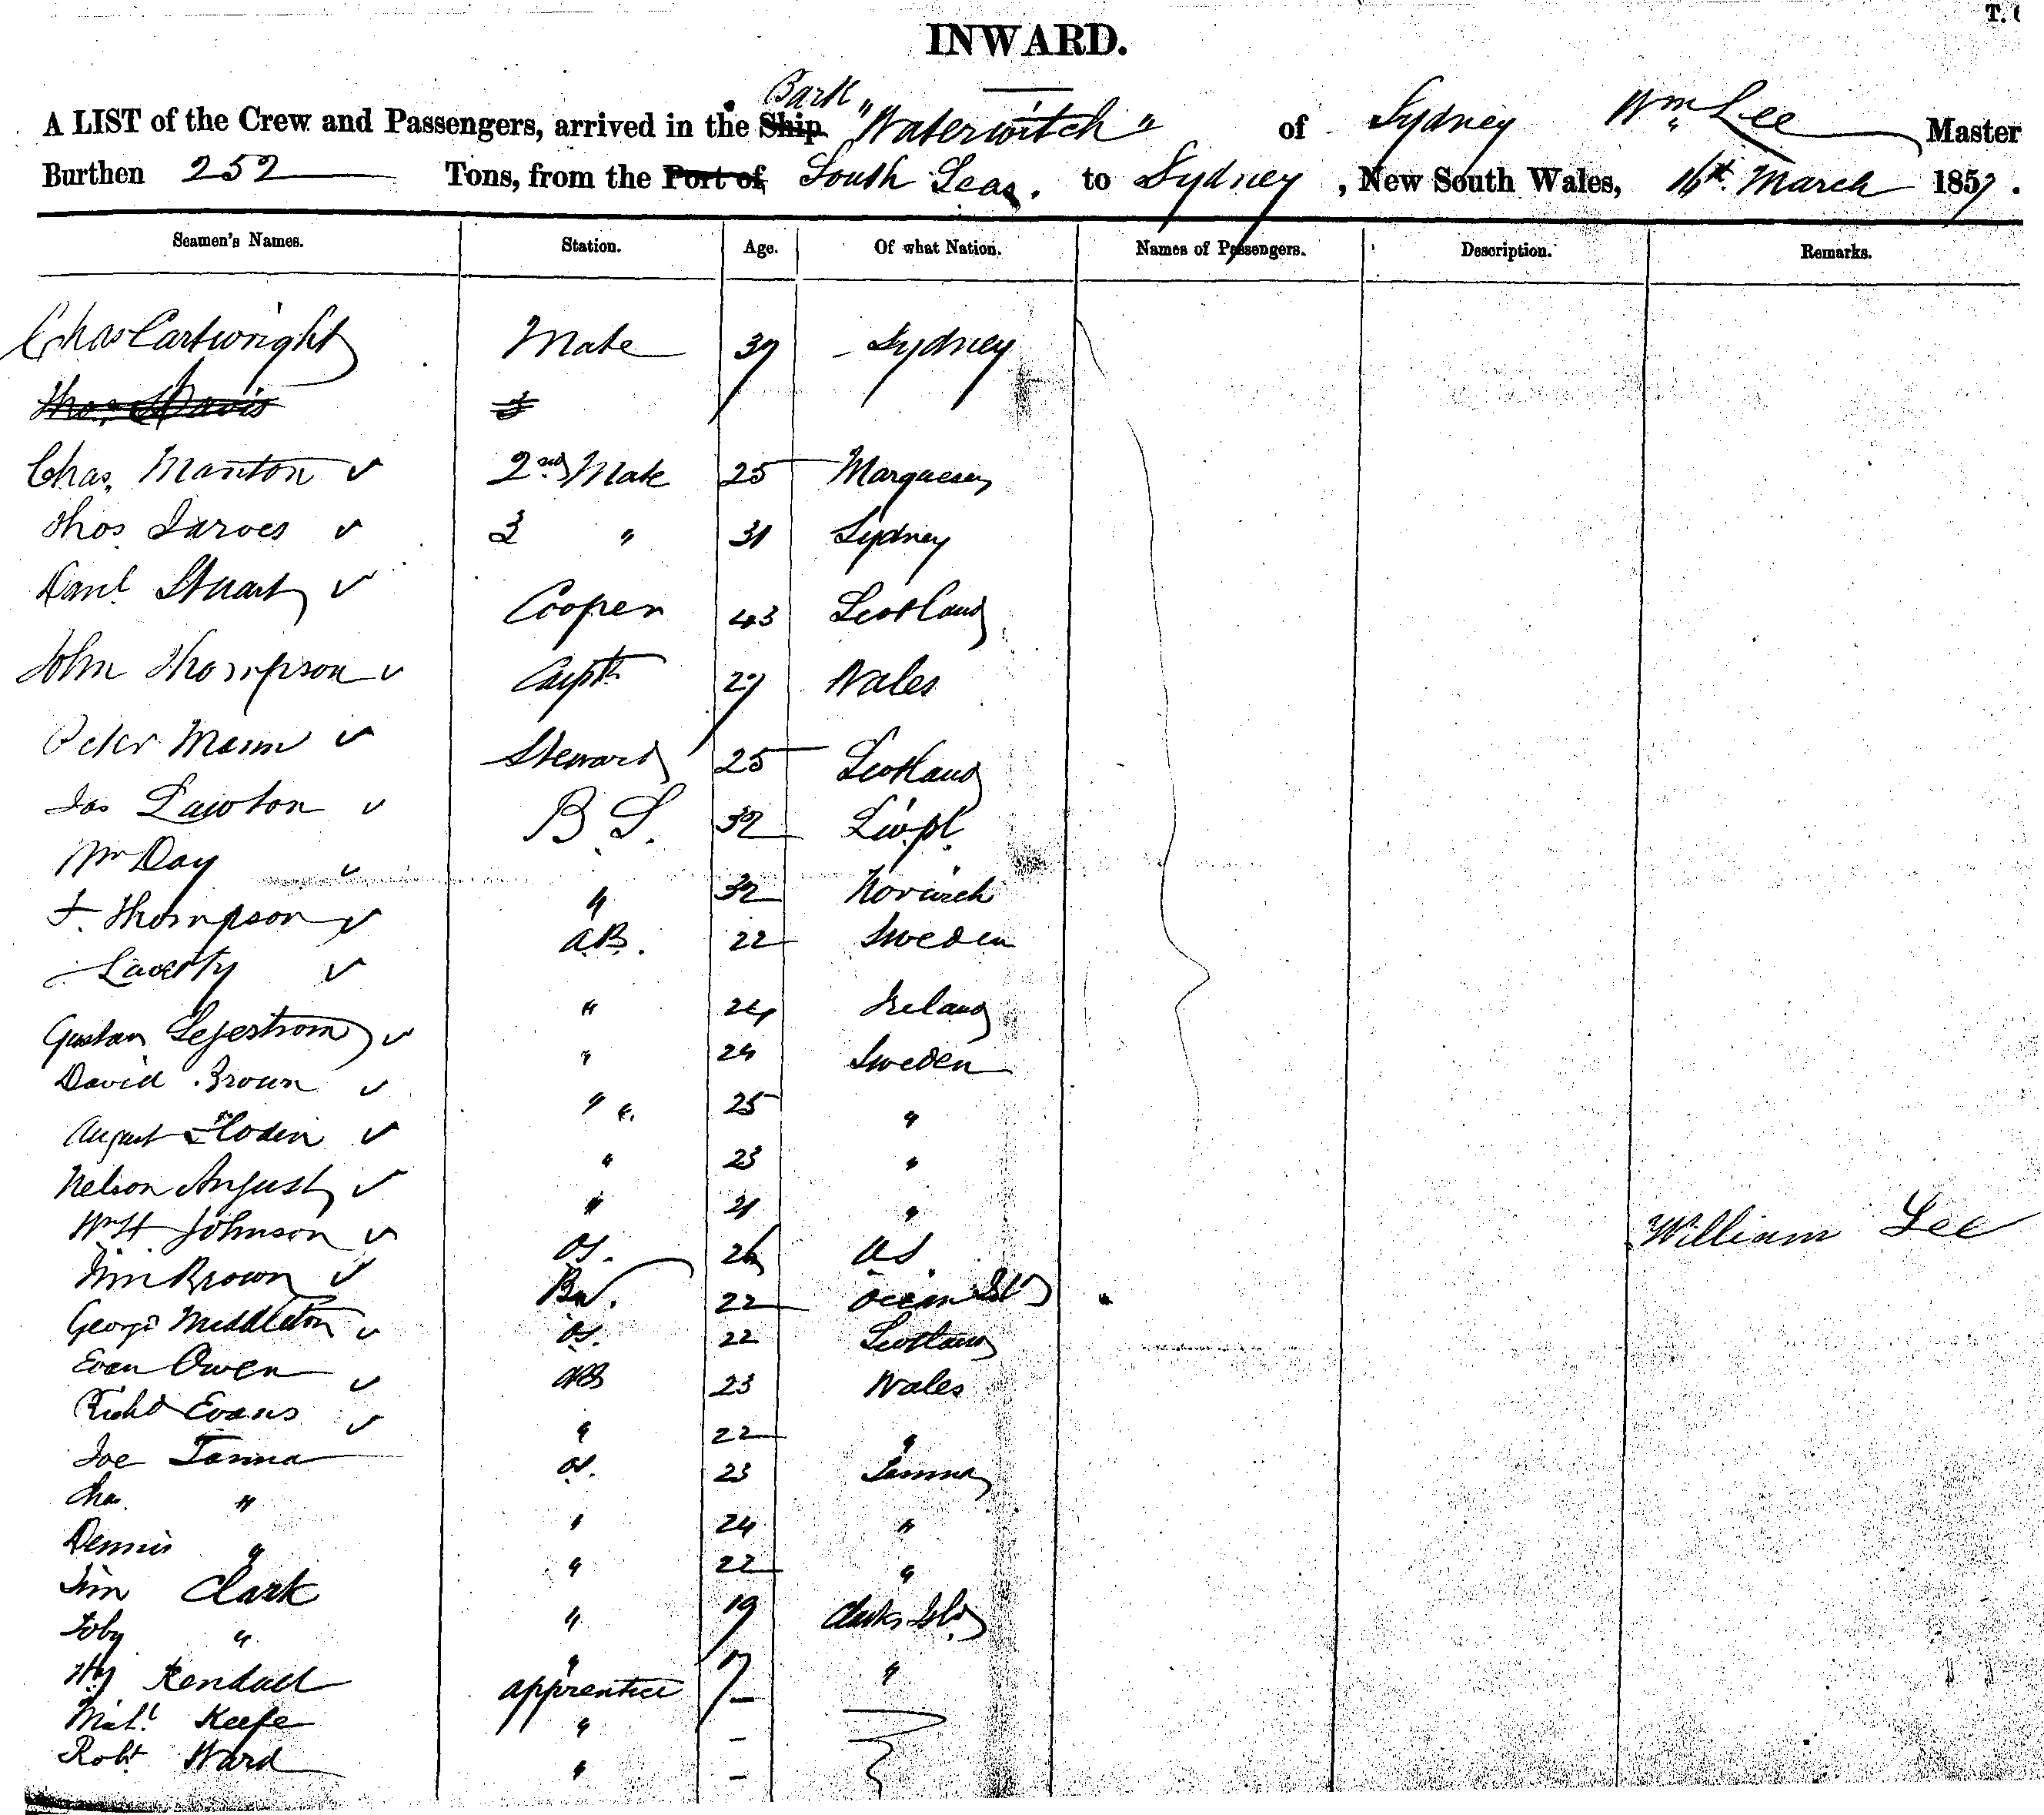 T. 
INWARD.
A LIST of the Crew and Passengers, arrived in the Ship Bark "Waterwitch" of Sydney Wm Lee Master
Burthen 252 Tons, from the Port of South Seas. to Sydney, New South Wales, 16th March 1857.
Seamen's Names. Station. Age. Of what Nation. Names of Passengers. Description. Remarks.
Chas Cartwright Mate 37 Sydney
Thos Davis
Chas. Manton 2nd Mate 25 Marquesas
Thos Jarves 3 " 31 Sydney
Danl Stuart Cooper 43 Scotland
John Thompson Carptr 27 Wales
Peter Mann Steward 25 Scotland
Jas Lawton B S. 32 Livpl.
Wm Day " 32 Norwich
F. Thompson AB. 22 Sweden
Laverty " 24 Ireland
Gustav Segestrom " 24 Sweden
David Brown " 25 "
August Flodin " 23 "
Nelson August " 21 "
Wm H Johnson OS. 26 US.
William Lee
Jim Brown 22 Ocean Isld
George Middleton OS. 22 Scotland
Evan Owen AB 23 Wales
Richd Evans " 22 "
Joe Tanna OS. 23 Tanna
Chas. " " 24 "
Dennis " " 22 "
Jim Clark " 19 Clarks Isld
Toby " " 17 "
Hy Kendall apprentice –
Michl. Keefe " –
Robt Ward " –